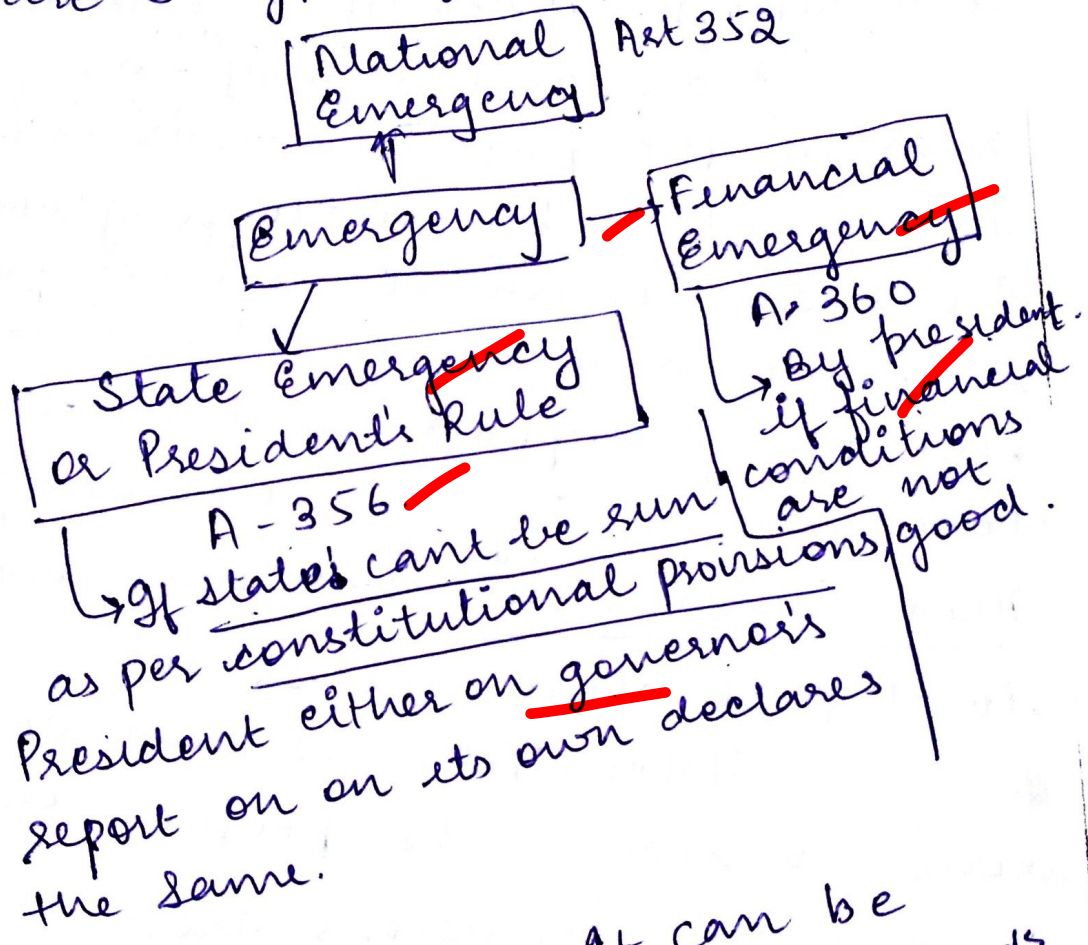 National
Emergency
Art 352
Emergency
Financial
Emergency
A. 360
By president.
if financial
conditions
are not
good.
State Emergency
or President's Rule
A - 356
If state's can't be run
as per constitutional provisions,
President either on governor's
report on on its own declares
the same.
It can be